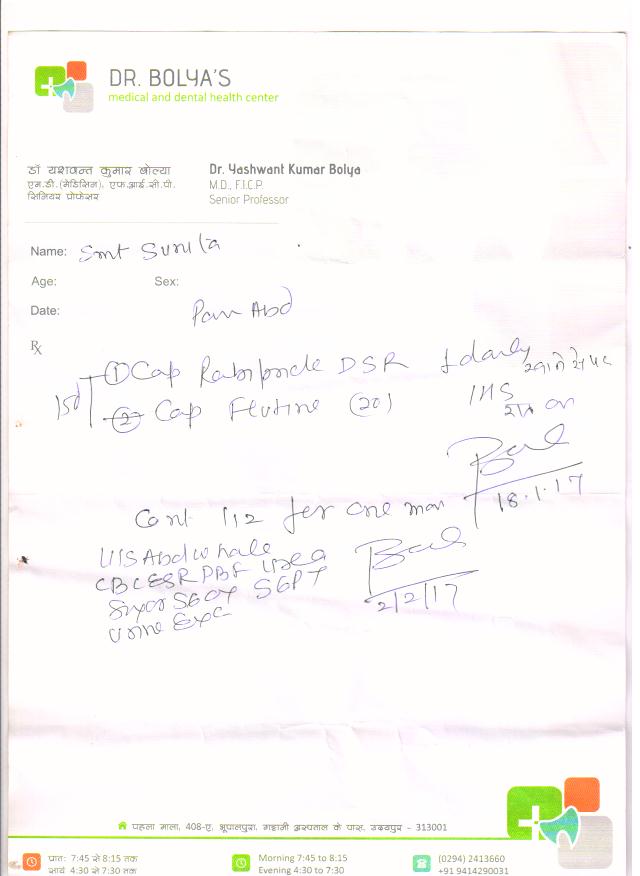 DR. BOLYA'S
medical and dental health center
डॉ यशवन्त कुमार बोल्या
एम.डी.(मेडिसिन), एफ.आई.सी.पी.
सिनियर प्रोफेसर
Dr. Yashwant Kumar Bolya
M.D., F.I.C.P.
Senior Professor
Name: Smt Sunila
Age: Sex:
Date:
Pain Abd
Rx
15d
① Cap Rabipride DSR 1 daily
खाने से पहले
② Cap Flutine (20) 1 HS
रात को
18.1.17
Cont 1,2 for one mon
U/S Abd whole
CBC ESR PBF Urea
Sugar SGOT SGPT
Urine Exc
2/2/17
पहला माला, 408-ए, भूपालपुरा, गट्टानी अस्पताल के पास, उदयपुर - 313001
प्रातः 7:45 से 8:15 तक
सायं 4:30 से 7:30 तक
Morning 7:45 to 8:15
Evening 4:30 to 7:30
(0294) 2413660
+91 9414290031